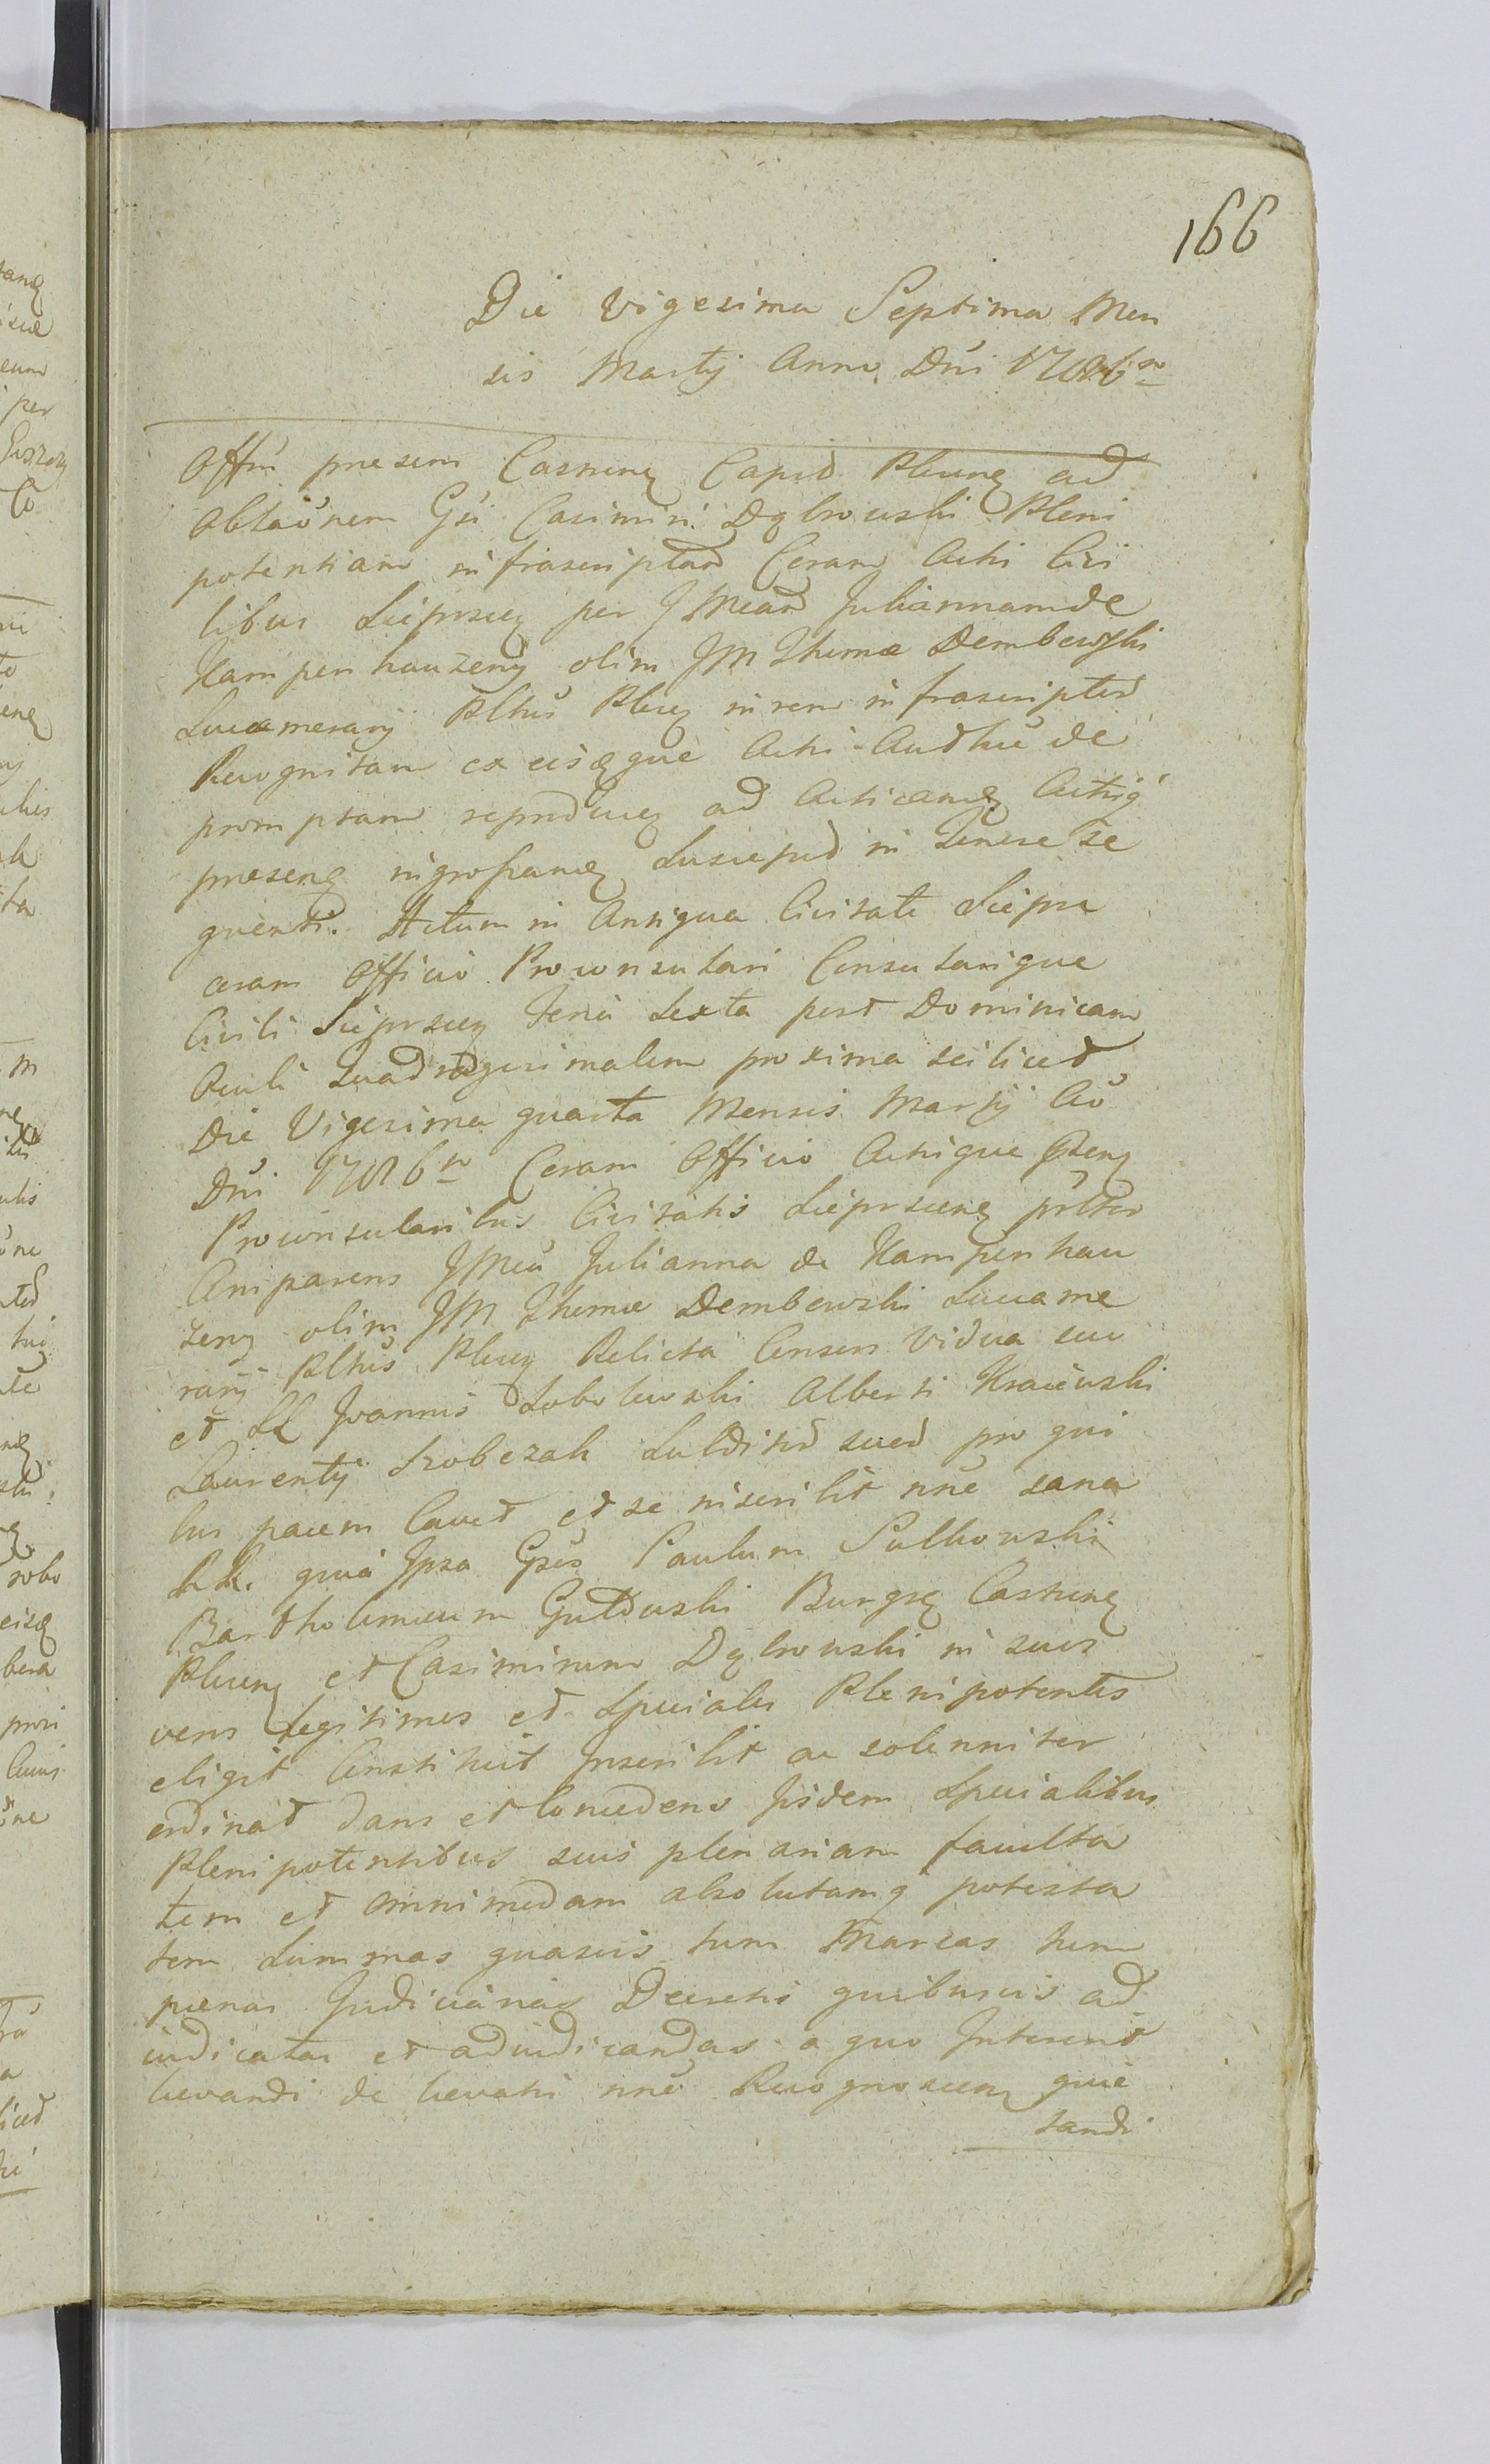 166
Die Vigesima Septima Men
sis Martij Anno Dni 1786to
Offm praesens Castrensę Capit Płocensę ad
oblaõnem Gsi Casimiri Dąbrowski Pleni
potentiam infrascriptam Coram Actis Civi
libus Sieprscensę per JMeam Juliannam de
Kampenhauzenÿ olim JM Thomæ Dembowski
Succamerarÿ Pltus Płocę in rem infrascriptam
Recognitam ex eisdęque Actis Audthce de
promptam reproducę ad Acticandę Actisq
praesenę ingrossandę Suscepit in Tenore se
quenti. Actum in Antiqua Civitate Sieprc
coram Officio Proconsulari Consularique
Civili Sieprscensę Feria Sexta post Dominicam
Oculi Quadragesimalem proxima scilicet
Die Vigesima quarta Mensis Martij Aõ
Dni 1786to Coram Officio Actisque Psenę
Proconsularibus Civitatis Sieprscensę psltter
Comparens JMea Julianna de Kampenhau
zenÿ olim JM Thomæ Dembowski Succame
rarÿ Pltus Płocę Relicta Consors Vidua suo
et LL Joannis Sobolewski Alberti Kraiewski
Laurentÿ Skobczak Subditor suor pro qui
bus pacem Cavet et se inscribit nne sana
RR. quia Ipsa Gsos Paulum Sutkowski
Bartholomeum Gutowski Burgsę Castrensę
Płocensę et Casimirum Dąbrowski in suos
veros Legitimos et Speciales Plenipotentes
eligit Constituit Inscribit ac solenniter
ordinat dans et Concedens Jisdem Specialibus
Plenipotentibus suis plenariam faculta
tem et omnimodam absolutamq potesta
tem Summas quasvis tum Marcas tum
pænas Judiciarias Decretis quibusvis ad
iudicatas et adiudicandas a quo Intererit
levandi de levatis nne Recognoscenę quie
tandi